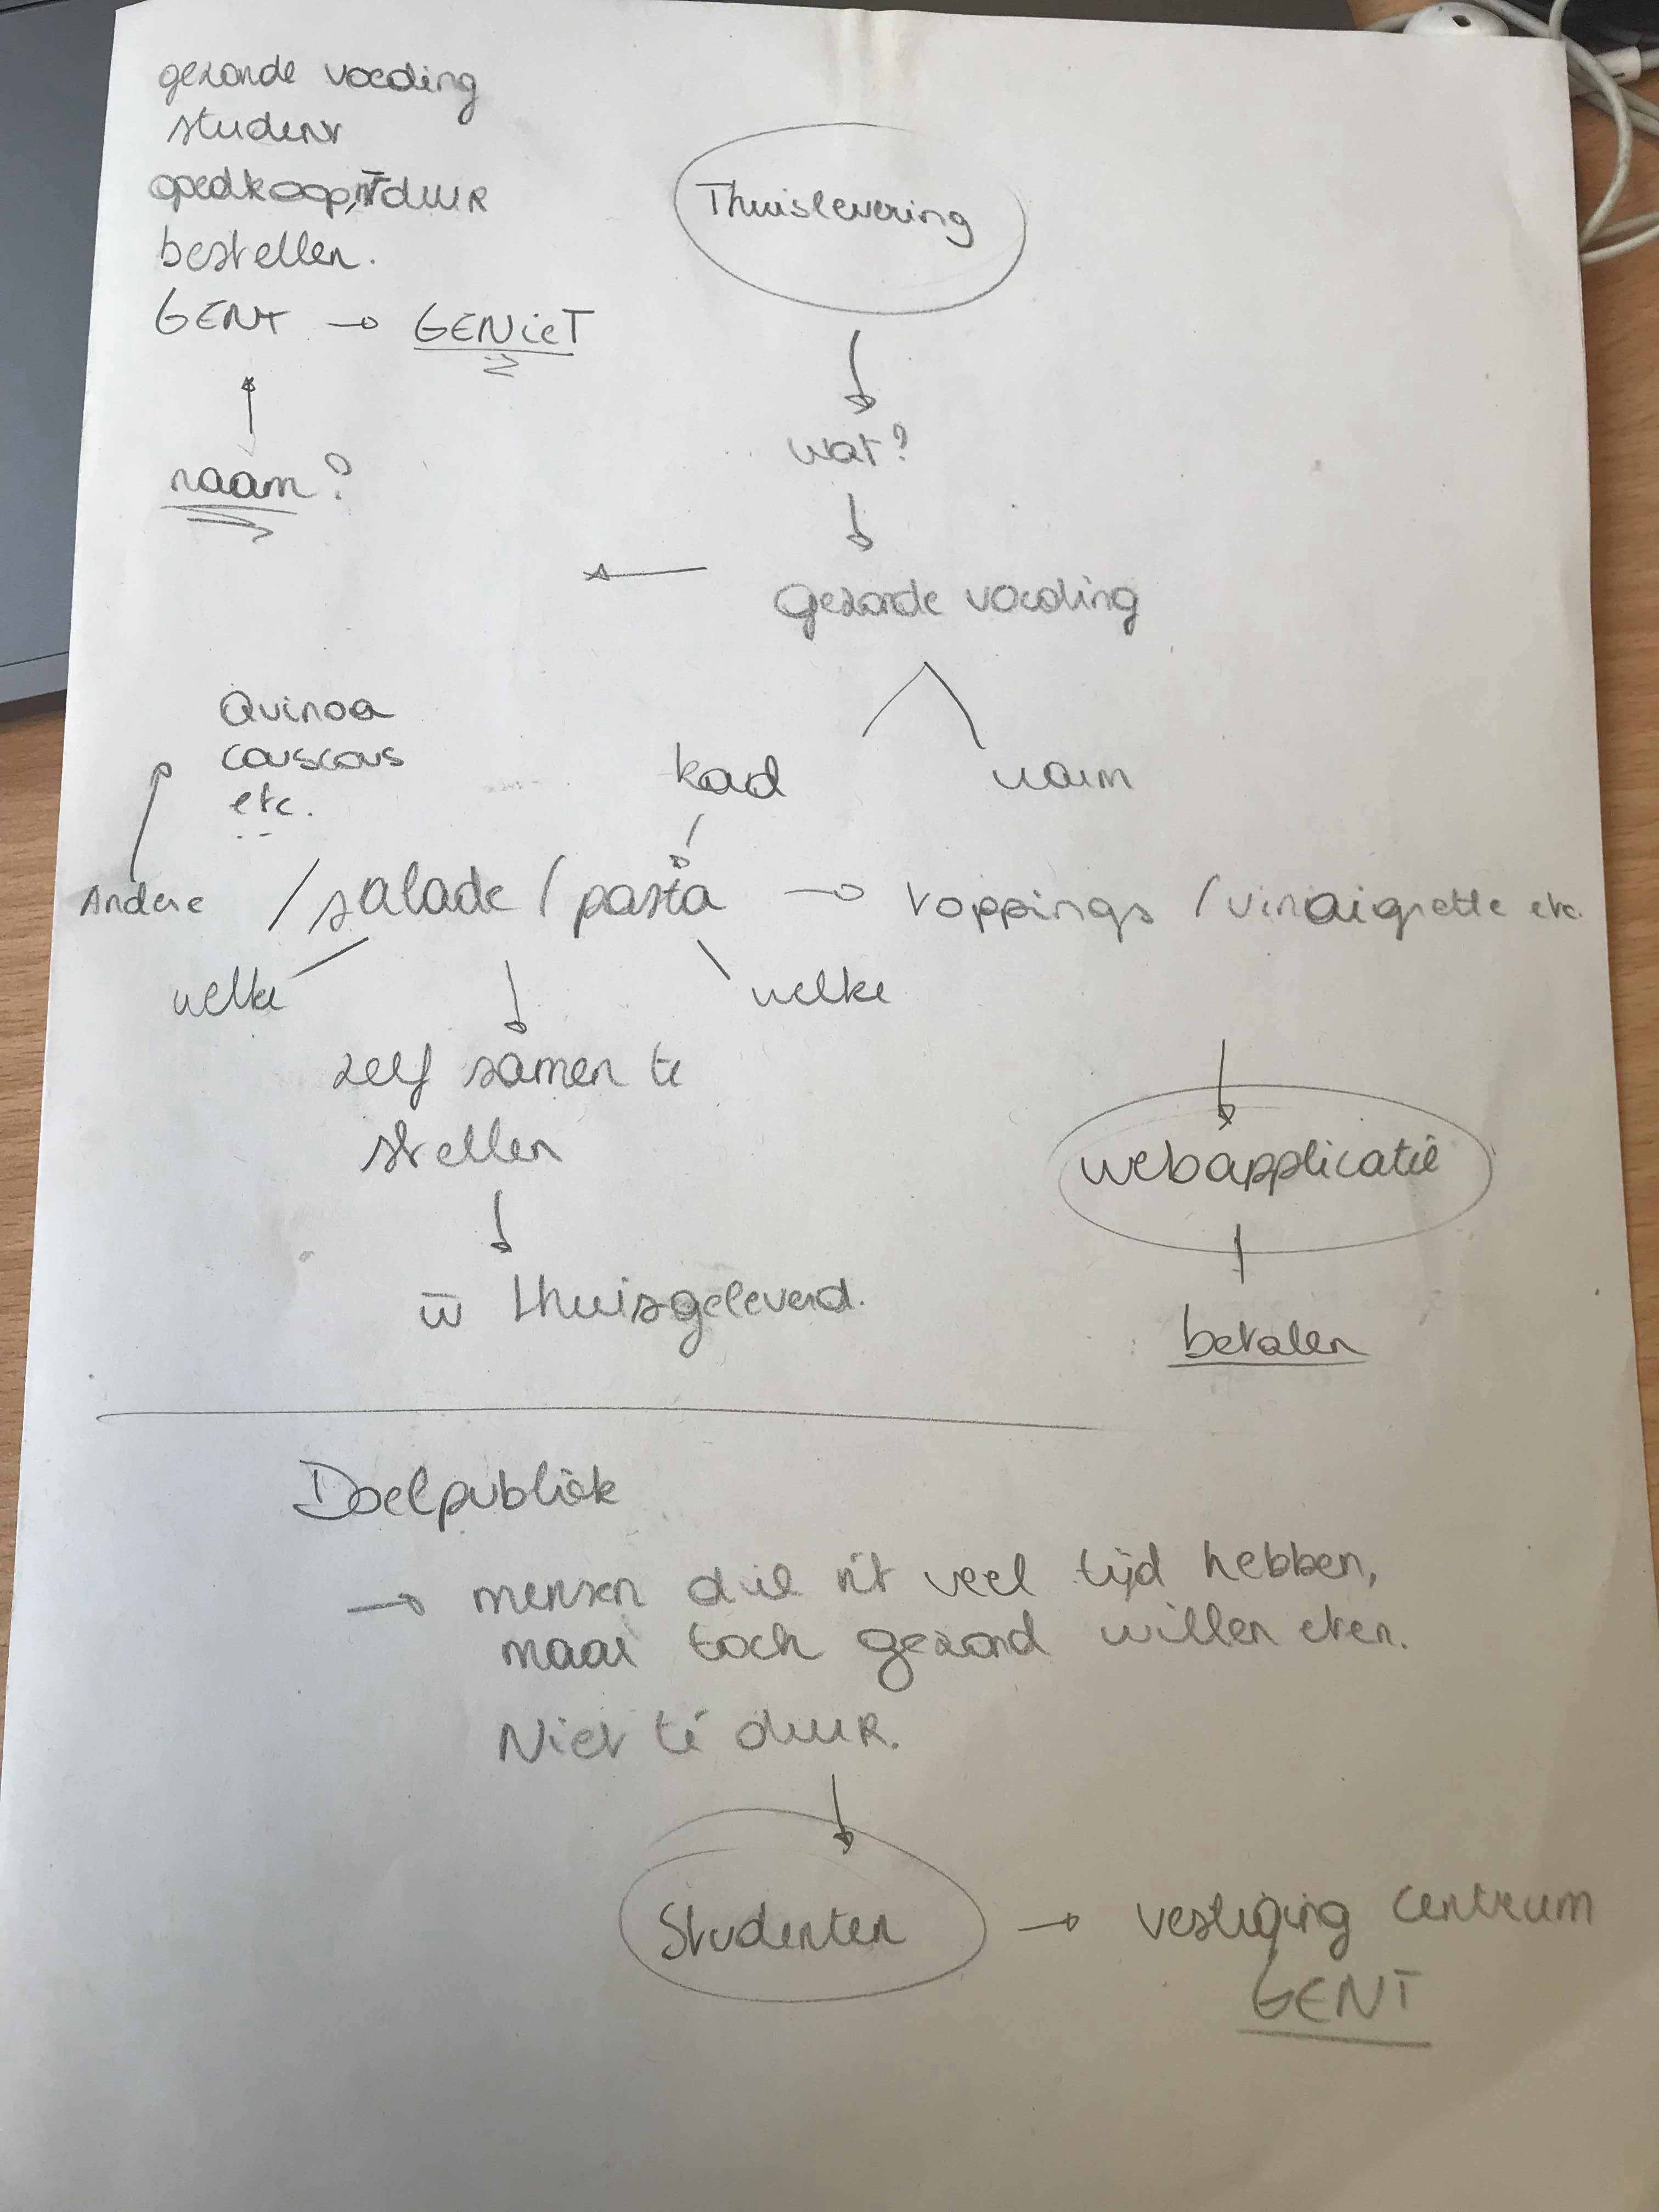 gezonde voeding
student
goedkoop, nt duur
bestellen.
GENT → GENieT
naam?
Thuislevering
wat?
gezonde voeding
koud
warm
Quinoa
couscous
etc.
Andere / salade / pasta → toppings / vinaigrette etc.
welke
welke
zelf samen te
stellen
thuisgeleverd.
webapplicatie
betalen
Doelpubliek
→ mensen die nt veel tijd hebben,
maar toch gezond willen eten.
Niet té duur.
Studenten → vestiging centrum
GENT